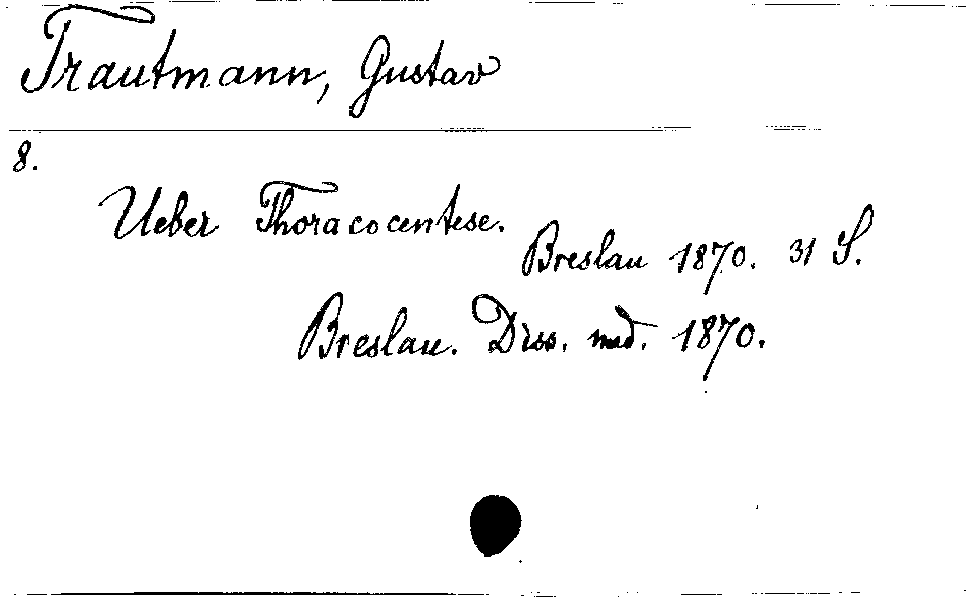 Trautmann, Gustav
8.
Ueber Thoracocentese.
Breslau 1870. 31 S.
Breslau. Diss. med. 1870.